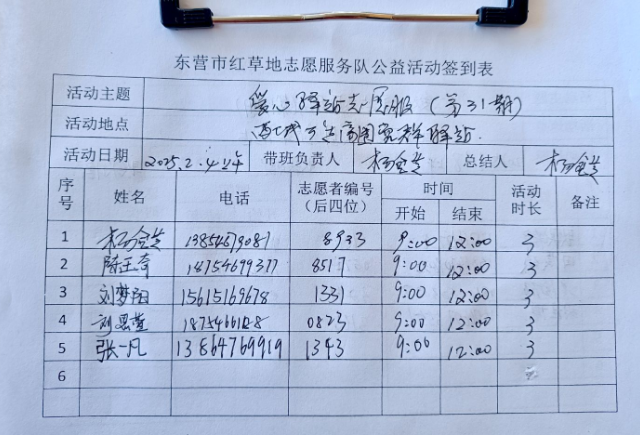 东营市红草地志愿服务队公益活动签到表
活动主题 爱心驿站志愿服 (第31期)
活动地点 西城万达商圈 驿站
活动日期 2025.2. 带班负责人 杨金芝 总结人 杨金芝
序号 姓名 电话 志愿者编号(后四位) 时间 开始 结束 活动时长 备注
1 杨金芝 13854679087 8933 9:00 12:00 3
2 陈玉奇 18754699377 8517 9:00 12:00 3
3 刘梦阳 15615169678 1331 9:00 12:00 3
4 0823 9:00 12:00 3
5 张一凡 13864769919 1343 9:00 12:00 3
6